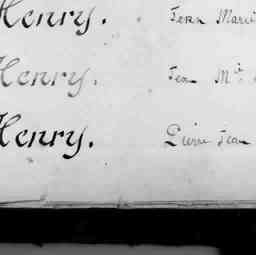 Henry. Jean Marie
Henry. Jean M.ie
Henry. Pierre Jean